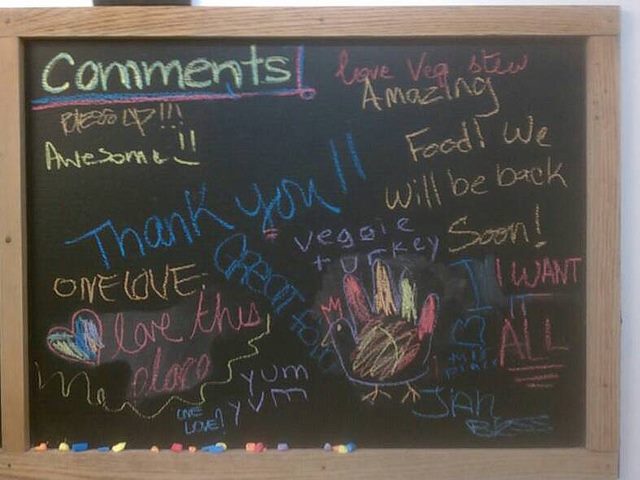 Comments!
love Veg stew
Amazing
Food! We
will be back
Soon!
BLESS UP!!!
Awesome!!
Thank you!!
veggie
turkey
ONE LOVE
GREAT FOOD
I WANT
IT
ALL
love this
place
yum
yum
ONE
LOVE!
JAH
BLESS